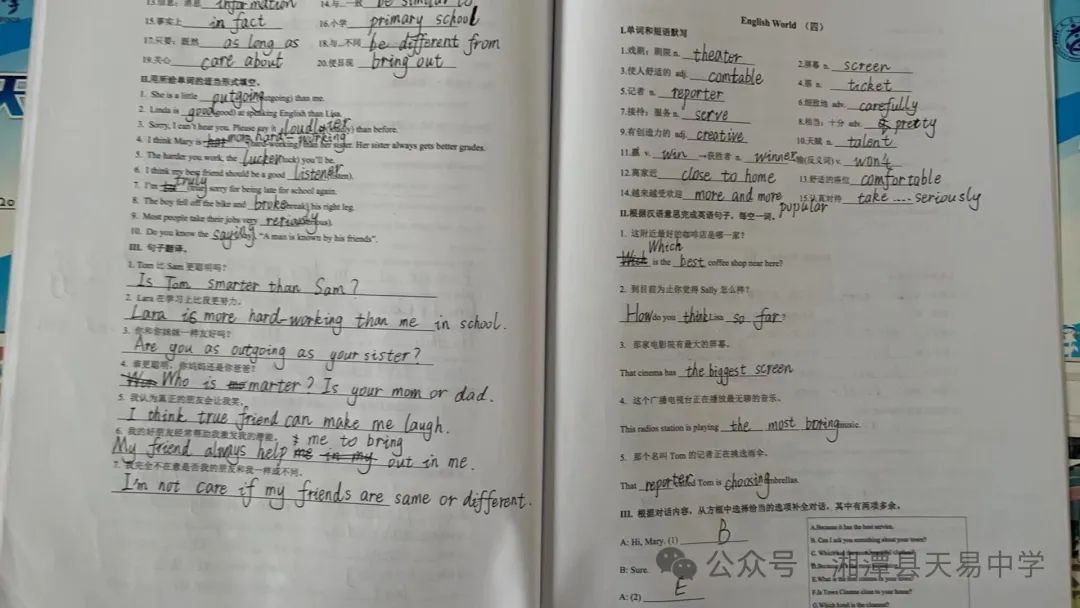 13.信息；消息 information 14.与…一致 be similar to
15.事实上 in fact 16.小学 primary school
17.只要；既然 as long as 18.与…不同 be different from
19.关心 care about 20.使显现 bring out
II.用所给单词的适当形式填空。
1. She is a little outgoing (outgoing) than me.
2. Linda is good (good) at speaking English than Lisa.
3. Sorry, I can't hear you. Please say it than before.
4. I think Mary is more hard-working (hard-working) than her sister. Her sister always gets better grades.
5. The harder you work, the lucker (luck) you'll be.
6. I think my best friend should be a good listener (listen).
7. I'm truly (true) sorry for being late for school again.
8. The boy fell off the bike and broke (break) his right leg.
9. Most people take their jobs very
10. Do you know the saying "A man is known by his friends".
III. 句子翻译。
1. Tom 比 Sam 更聪明吗？
Is Tom smarter than Sam?
2. Lara 在学习上比我更努力。
Lara is more hard-working than me in school.
3. 你和你妹妹一样友好吗？
Are you as outgoing as your sister?
4. 谁更聪明，你妈妈还是你爸爸？
Who is smarter? Is your mom or dad.
5. 我认为真正的朋友会让我笑。
I think true friend can make me laugh.
6. 我的好朋友经常帮助我激发我的潜能。
My friend always help me to bring out in me.
7. 我完全不在意是否我的朋友和我一样或不同。
I'm not care if my friends are same or different.
English World （四）
I.单词和短语默写
1.戏剧；剧院 n. theater 2.屏幕 n. screen
3.使人舒适的 adj. comtable 4.票 n. ticket
5.记者 n. reporter 6.细致地 adv. carefully
7.接待；服务 n. serve 8.相当；十分 adv. pretty
9.有创造力的 adj. creative 10.天赋 n. talent
11.赢 v. win →获胜者 n. winner 输(反义词) v.
12.离家近 close to home 13.舒适的座位 comfortable
14.越来越受欢迎 more and more popular 15.认真对待 take .... seriously
II.根据汉语意思完成英语句子，每空一词。
1. 这附近最好的咖啡店是哪一家？
Which is the best coffee shop near here?
2. 到目前为止你觉得 Sally 怎么样？
How do you think Lisa so far?
3. 那家电影院有最大的屏幕。
That cinema has the biggest screen
4. 这个广播电视台正在播放最无聊的音乐。
This radios station is playing the most boring music.
5. 那个名叫 Tom 的记者正在挑选雨伞。
That reporter called Tom is choosing umbrellas.
III. 根据对话内容，从方框中选择恰当的选项补全对话，其中有两项多余。
A: Hi, Mary. (1) B
B: Sure.
A: (2) E
A.Because it has the best service.
B. Can I ask you something about your town?
E.What is the best cinema in your town?
F.Is Town Cinema close to your house?
G.Which hotel is the cleanest?
公众号 · 湘潭县天易中学